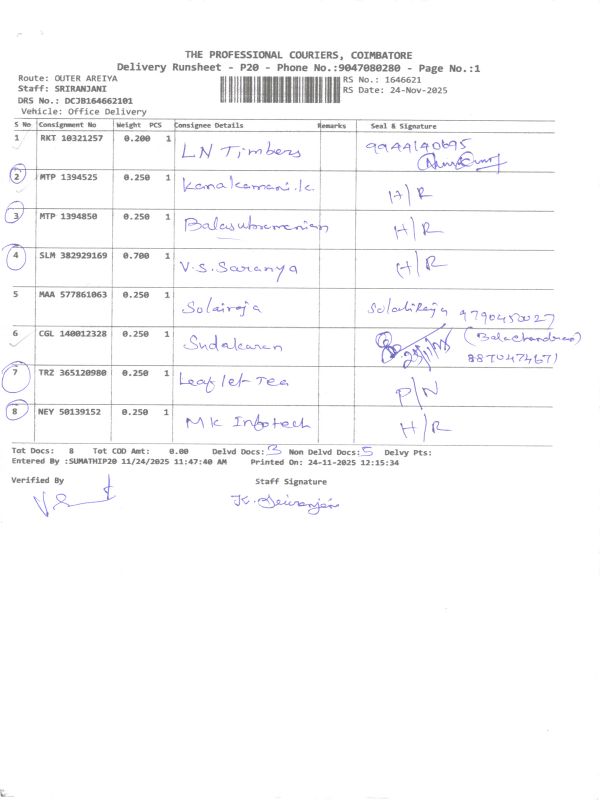 THE PROFESSIONAL COURIERS, COIMBATORE
Delivery Runsheet - P20 - Phone No.:9047080280 - Page No.:1
Route: OUTER AREIYA RS No.: 1646621
Staff: SRIRANJANI RS Date: 24-Nov-2025
DRS No.: DCJB164662101
Vehicle: Office Delivery
S No Consignment No Weight PCS Consignee Details Remarks Seal & Signature
1 RKT 10321257 0.200 1 LN Timbers 9944140695
2 MTP 1394525 0.250 1 Kanakamani.k H/R
3 MTP 1394850 0.250 1 Balasubramanian H/R
4 SLM 382929169 0.700 1 V.S. Saranya H/R
5 MAA 577861063 0.250 1 Solairaja Solairaja 9790450027
6 CGL 140012328 0.250 1 Sudakaran (Balachandran)
8870474671
7 TRZ 365120980 0.250 1 Leaflet-Tea P/N
8 NEY 50139152 0.250 1 MK Infotech H/R
Tot Docs: 8 Tot COD Amt: 0.00 Delvd Docs: 3 Non Delvd Docs: 5 Delvy Pts:
Entered By :SUMATHIP20 11/24/2025 11:47:40 AM Printed On: 24-11-2025 12:15:34
Verified By Staff Signature